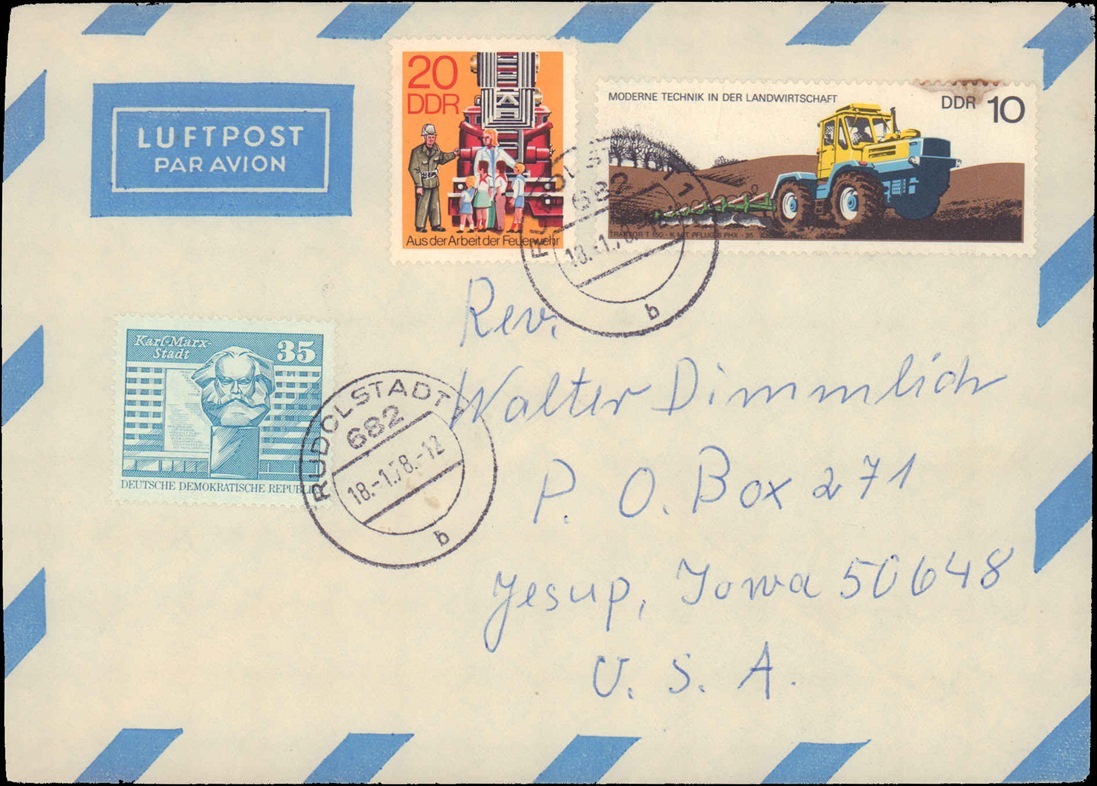 LUFTPOST
PAR AVION
20
DDR
Aus der Arbeit der Feuerwehr
MODERNE TECHNIK IN DER LANDWIRTSCHAFT
DDR 10
TRAKTOR T 150 - K MIT PFLUG B PHX - 35
RUDOLSTADT 1
682
18.-1.78.
b
Karl-Marx-
Stadt
35
DEUTSCHE DEMOKRATISCHE
RUDOLSTADT 1
682
18.-1.78.-12
b
Rev.
Walter Dimmlich
P. O. Box 271
Jesup, Iowa 50648
U. S. A.